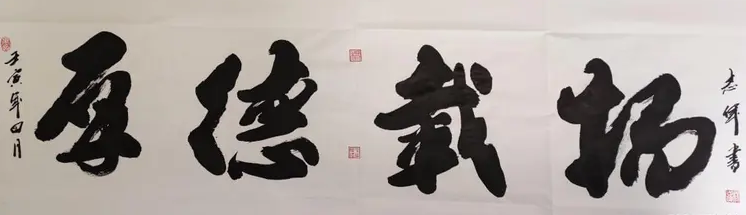 壬寅年四月
厚德載物
志 書